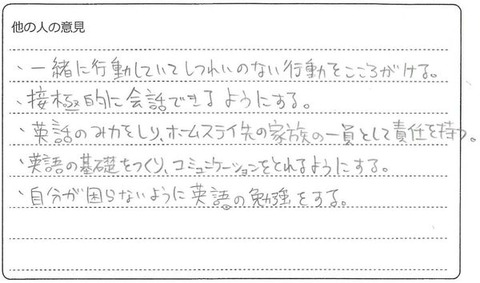 他の人の意見
・一緒に行動していてしつれいのない行動をこころがける。
・接極的に会話できるようにする。
・英語のみ力をしり、ホームステイ先の家族の一員として責任を持つ。
・英語の基礎をつくり、コミュニケーションをとれるようにする。
・自分が困らないように英語の勉強をする。